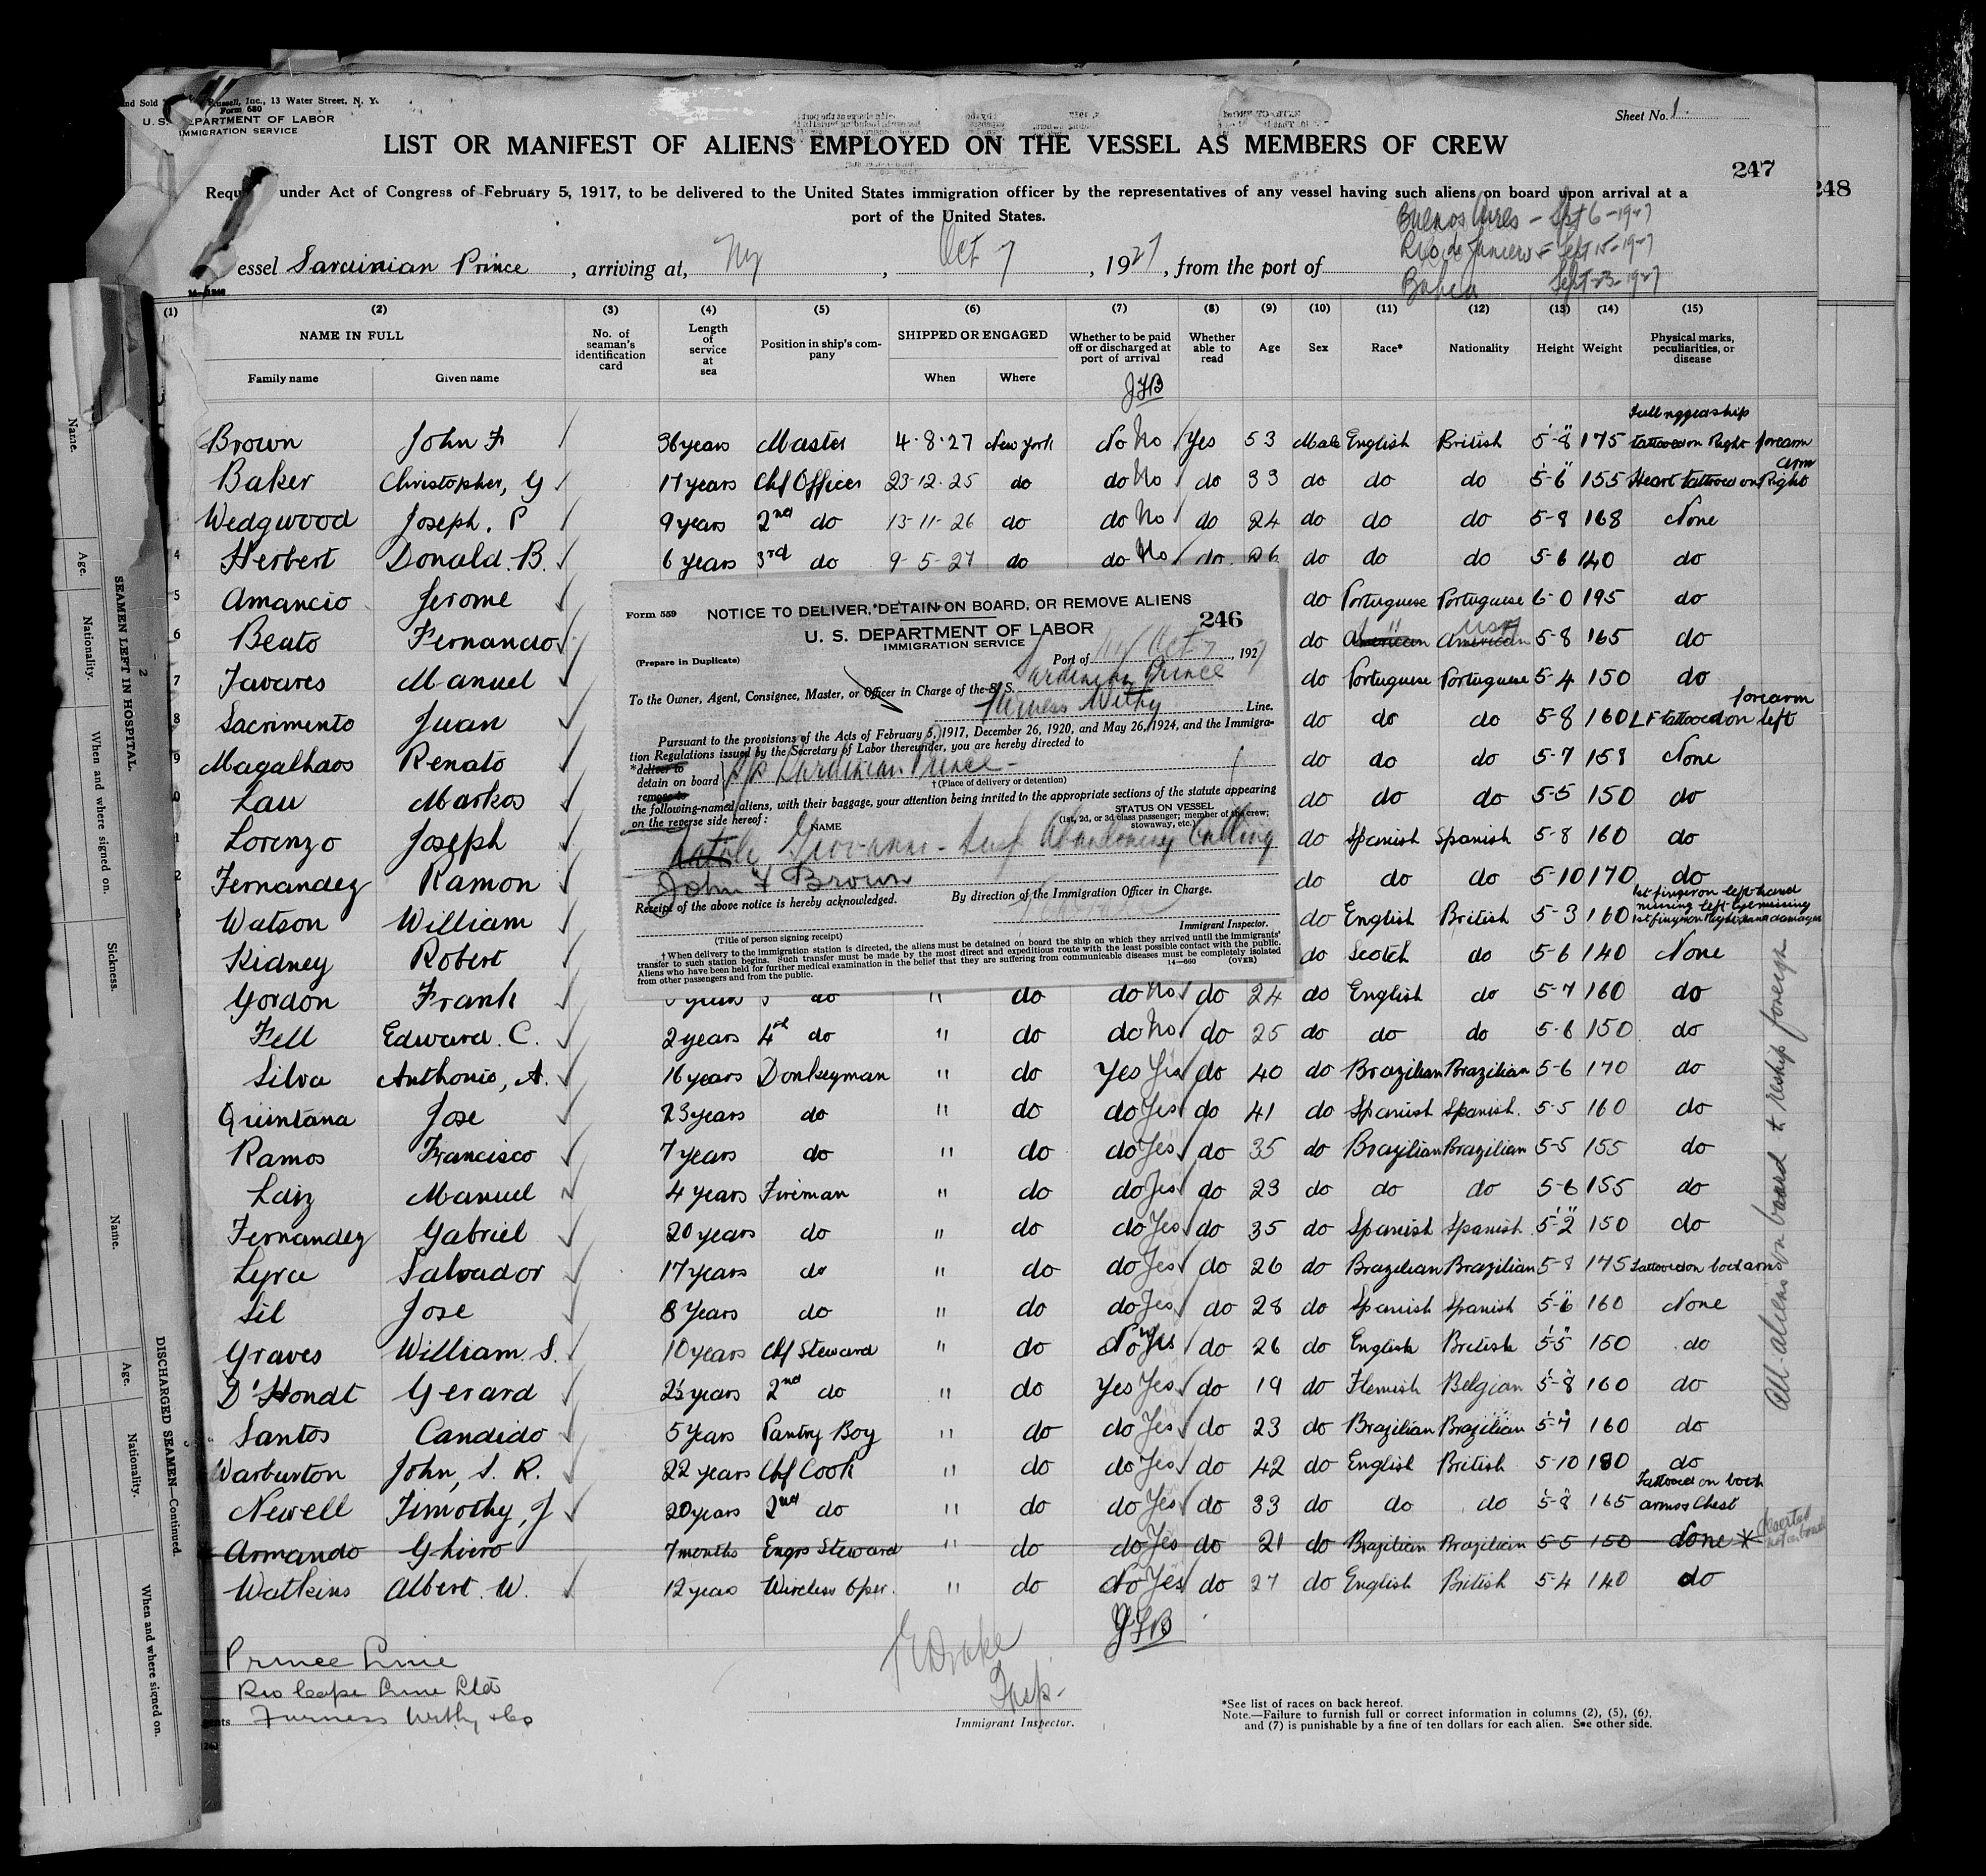 and Sold
Russell, Inc., 13 Water Street, N. Y.
Form 680
U. S. DEPARTMENT OF LABOR
IMMIGRATION SERVICE
Sheet No. 1
LIST OR MANIFEST OF ALIENS EMPLOYED ON THE VESSEL AS MEMBERS OF CREW
247
248
Requ under Act of Congress of February 5, 1917, to be delivered to the United States immigration officer by the representatives of any vessel having such aliens on board upon arrival at a
port of the United States.
Buenos Aires - Sept 6-1927
Rio de Janiero - Sept 15-1927
Bahia Sept-23-1927
essel Sardinian Prince, arriving at, Ny, Oct 7, 1927, from the port of
(1) (2) (3) (4) (5) (6) (7) (8) (9) (10) (11) (12) (13) (14) (15)
NAME IN FULL No. of seaman's identification card Length of service at sea Position in ship's company SHIPPED OR ENGAGED Whether to be paid off or discharged at port of arrival Whether able to read Age Sex Race* Nationality Height Weight Physical marks, peculiarities, or disease
Family name Given name When Where
JFB
Brown John F 36 years Master 4·8·27 New York No No Yes 53 Male English British 5'-8" 175 Full rigged ship tattooed on Right forearm
Baker Christopher, G 17 years Chf Officer 23·12·25 do do No do 33 do do do 5'-6" 155 Heart tattooed on Right arm
Wedgwood Joseph. P 9 years 2nd do 13-11-26 do do No do 24 do do do 5-8 168 None
4 Herbert Donald. B. 6 years 3rd do 9-5-27 do do No do 26 do do do 5-6 140 do
5 Amancio Jerome do Portuguese Portuguese 6-0 195 do
6 Beato Fernando do American " American USA 5-8 165 do
7 Tavares Manuel do Portuguese Portuguese 5-4 150 do
8 Sacrimento Juan do do do 5-8 160 LF tattooed on left forearm
9 Magalhaos Renato do do do 5-7 158 None
0 Lau Markos do do do 5-5 150 do
1 Lorenzo Joseph do Spanish Spanish 5-8 160 do
2 Fernandez Ramon do do do 5-10 170 do
3 Watson William do English British 5-3 160 1st finger on left hand missing left eye missing 1st finger on Right hand damaged
Kidney Robert do Scotch do 5-6 140 None
Gordon Frank years 3 do " do do No do 24 do English do 5-7 160 do
Fell Edward. C. 2 years 4th do " do do No do 25 do do do 5-6 150 do
Silva Anthonio, A. 16 years Donkeyman " do Yes Yes do 40 do Brazilian Brazilian 5-6 170 do
Quintana Jose 23 years do " do do Yes do 41 do Spanish Spanish. 5-5 160 do
Ramos Francisco 7 years do " do do Yes do 35 do Brazilian Brazilian 5-5 155 do
Laiz Manuel 4 years Fireman " do do Yes do 23 do do do 5-6 155 do
Fernandez Gabriel 20 years do " do do Yes do 35 do Spanish Spanish 5'-2" 150 do
Lyra Salvador 17 years do " do do Yes do 26 do Brazilian Brazilian 5-8 175 tattooed on both arms
Sil Jose 8 years do " do do Yes do 28 do Spanish Spanish 5'-6" 160 None
Graves William. S. 10 years Chf Steward " do No Yes do 26 do English British 5'-5" 150 do
D'Hondt Gerard 2½ years 2nd do " do Yes Yes do 19 do Flemish Belgian 5'-8" 160 do
Santos Candido 5 years Pantry Boy " do do Yes do 23 do Brazilian Brazilian 5'-7" 160 do
Warburton John, S. R. 22 years Chf Cook " do do Yes do 42 do English British 5-10 180 do
Newell Timothy, J 20 years 2nd do " do do Yes do 33 do do do 5'-8" 165 Tattooed on both arms & Chest
Armando Ghiero 7 months Engrs Steward " do do Yes do 21 do Brazilian Brazilian 5-5 150 None * Deserted not on board
Watkins Albert. W. 12 years Wireless Oper. " do No Yes do 27 do English British 5-4 140 do
JFB
All aliens on board to reship foreign
Form 559
NOTICE TO DELIVER, *DETAIN ON BOARD, OR REMOVE ALIENS
246
U. S. DEPARTMENT OF LABOR
IMMIGRATION SERVICE
(Prepare in Duplicate)
Port of NY Oct 7, 1927
To the Owner, Agent, Consignee, Master, or Officer in Charge of the S. S. Sardinian Prince
Furness Withy Line.
Pursuant to the provisions of the Acts of February 5, 1917, December 26, 1920, and May 26, 1924, and the Immigra-
tion Regulations issued by the Secretary of Labor thereunder, you are hereby directed to
*deliver to
detain on board s/s Sardinian Prince -
remove to
†(Place of delivery or detention)
the following-named aliens, with their baggage, your attention being invited to the appropriate sections of the statute appearing
on the reverse side hereof:
NAME
STATUS ON VESSEL
(1st, 2d, or 3d class passenger; member of the crew;
stowaway, etc.)
Giovanni - Abandoning Calling
John F Brown
Receipt of the above notice is hereby acknowledged.
By direction of the Immigration Officer in Charge.
Immigrant Inspector.
(Title of person signing receipt)
†When delivery to the immigration station is directed, the aliens must be detained on board the ship on which they arrived until the immigrants'
transfer to such station begins. Such transfer must be made by the most direct and expeditious route with the least possible contact with the public.
Aliens who have been held for further medical examination in the belief that they are suffering from communicable diseases must be completely isolated
from other passengers and from the public.
14—660 (OVER)
Prince Line
Rio Cape Line Ltd
Furness Withy & Co
Drake
Insp.
Immigrant Inspector.
*See list of races on back hereof.
Note.—Failure to furnish full or correct information in columns (2), (5), (6),
and (7) is punishable by a fine of ten dollars for each alien. See other side.
Name.
Age.
Nationality.
When and where signed on.
Sickness.
SEAMEN LEFT IN HOSPITAL.
2
Name.
Age.
Nationality.
When and where signed on.
DISCHARGED SEAMEN—Continued.